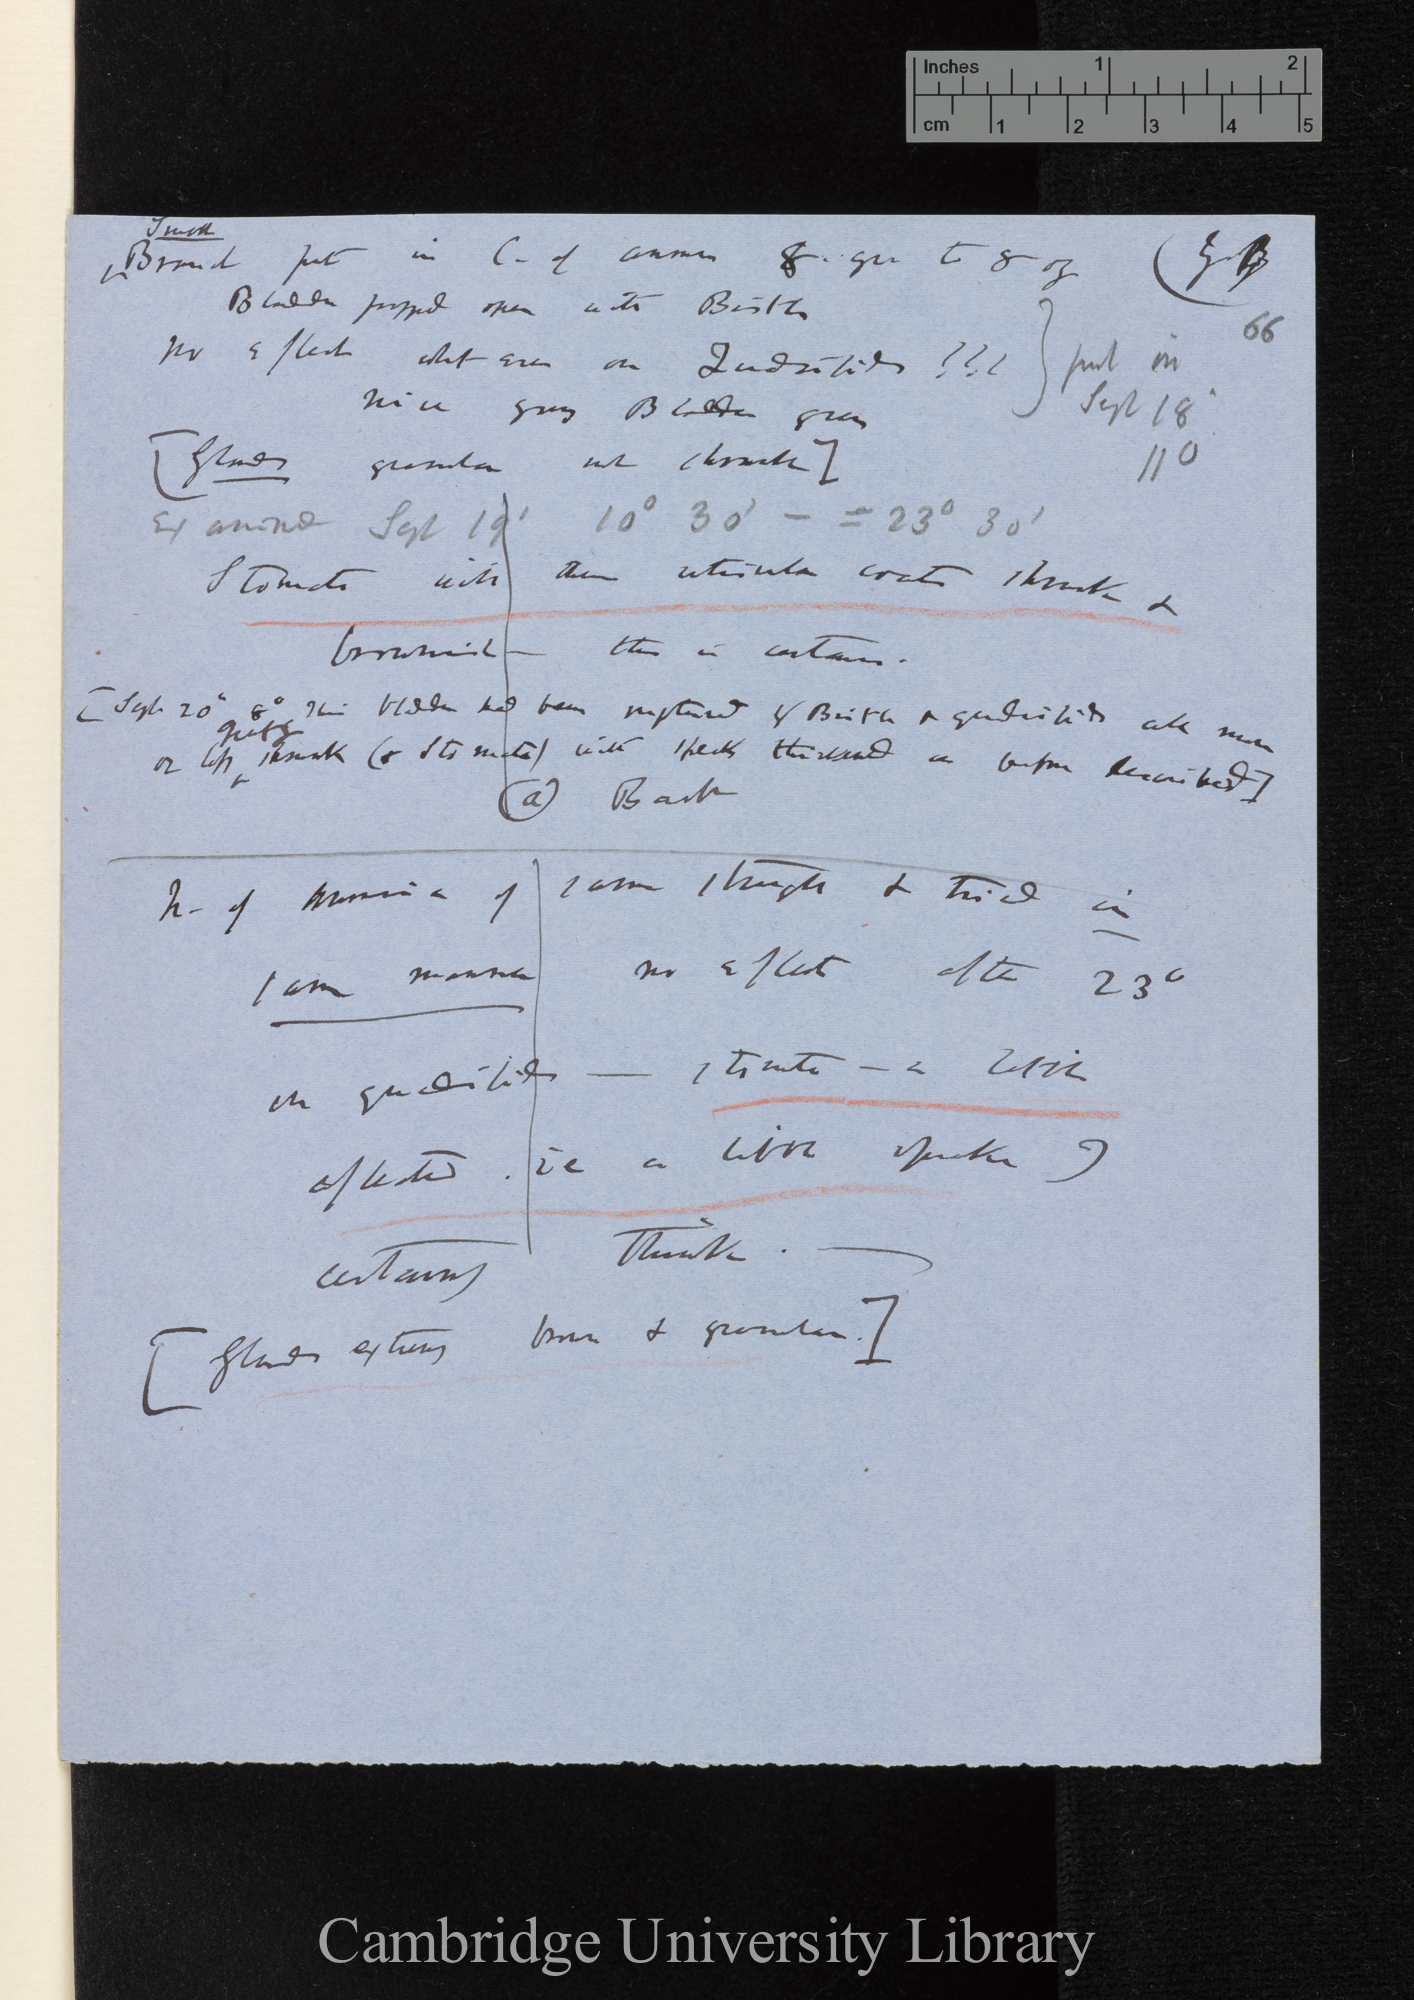 Inches 1 2
cm 1 2 3 4 5
Small
Branch put in C- of ammon 8 gr to 8 oz
66
Bladder popped open with Bristle
no effect whatever on Quadrifids !!! } put in
Sept 18°
nice green Bladder green
[Glands granular not shrunk] 11°
Examined Sept 19' 10° 30' — = 23° 30'
Stomata with their utricular coats shrunk &
brownish — this is certain.
[Sept 20° 8° This bladder had been ruptured by Bristle & quadrifids all more
greatly
or less shrunk (& Stomata) with specks thickened as before described]
(a) Back
N- of Ammonia of same strength & tried in
same manner no effect after 23°
on quadrifids — stomata — a little
affected . ie a little opake ?
certainly I think . —
[Glands extremely brown & granular.]
Cambridge University Library